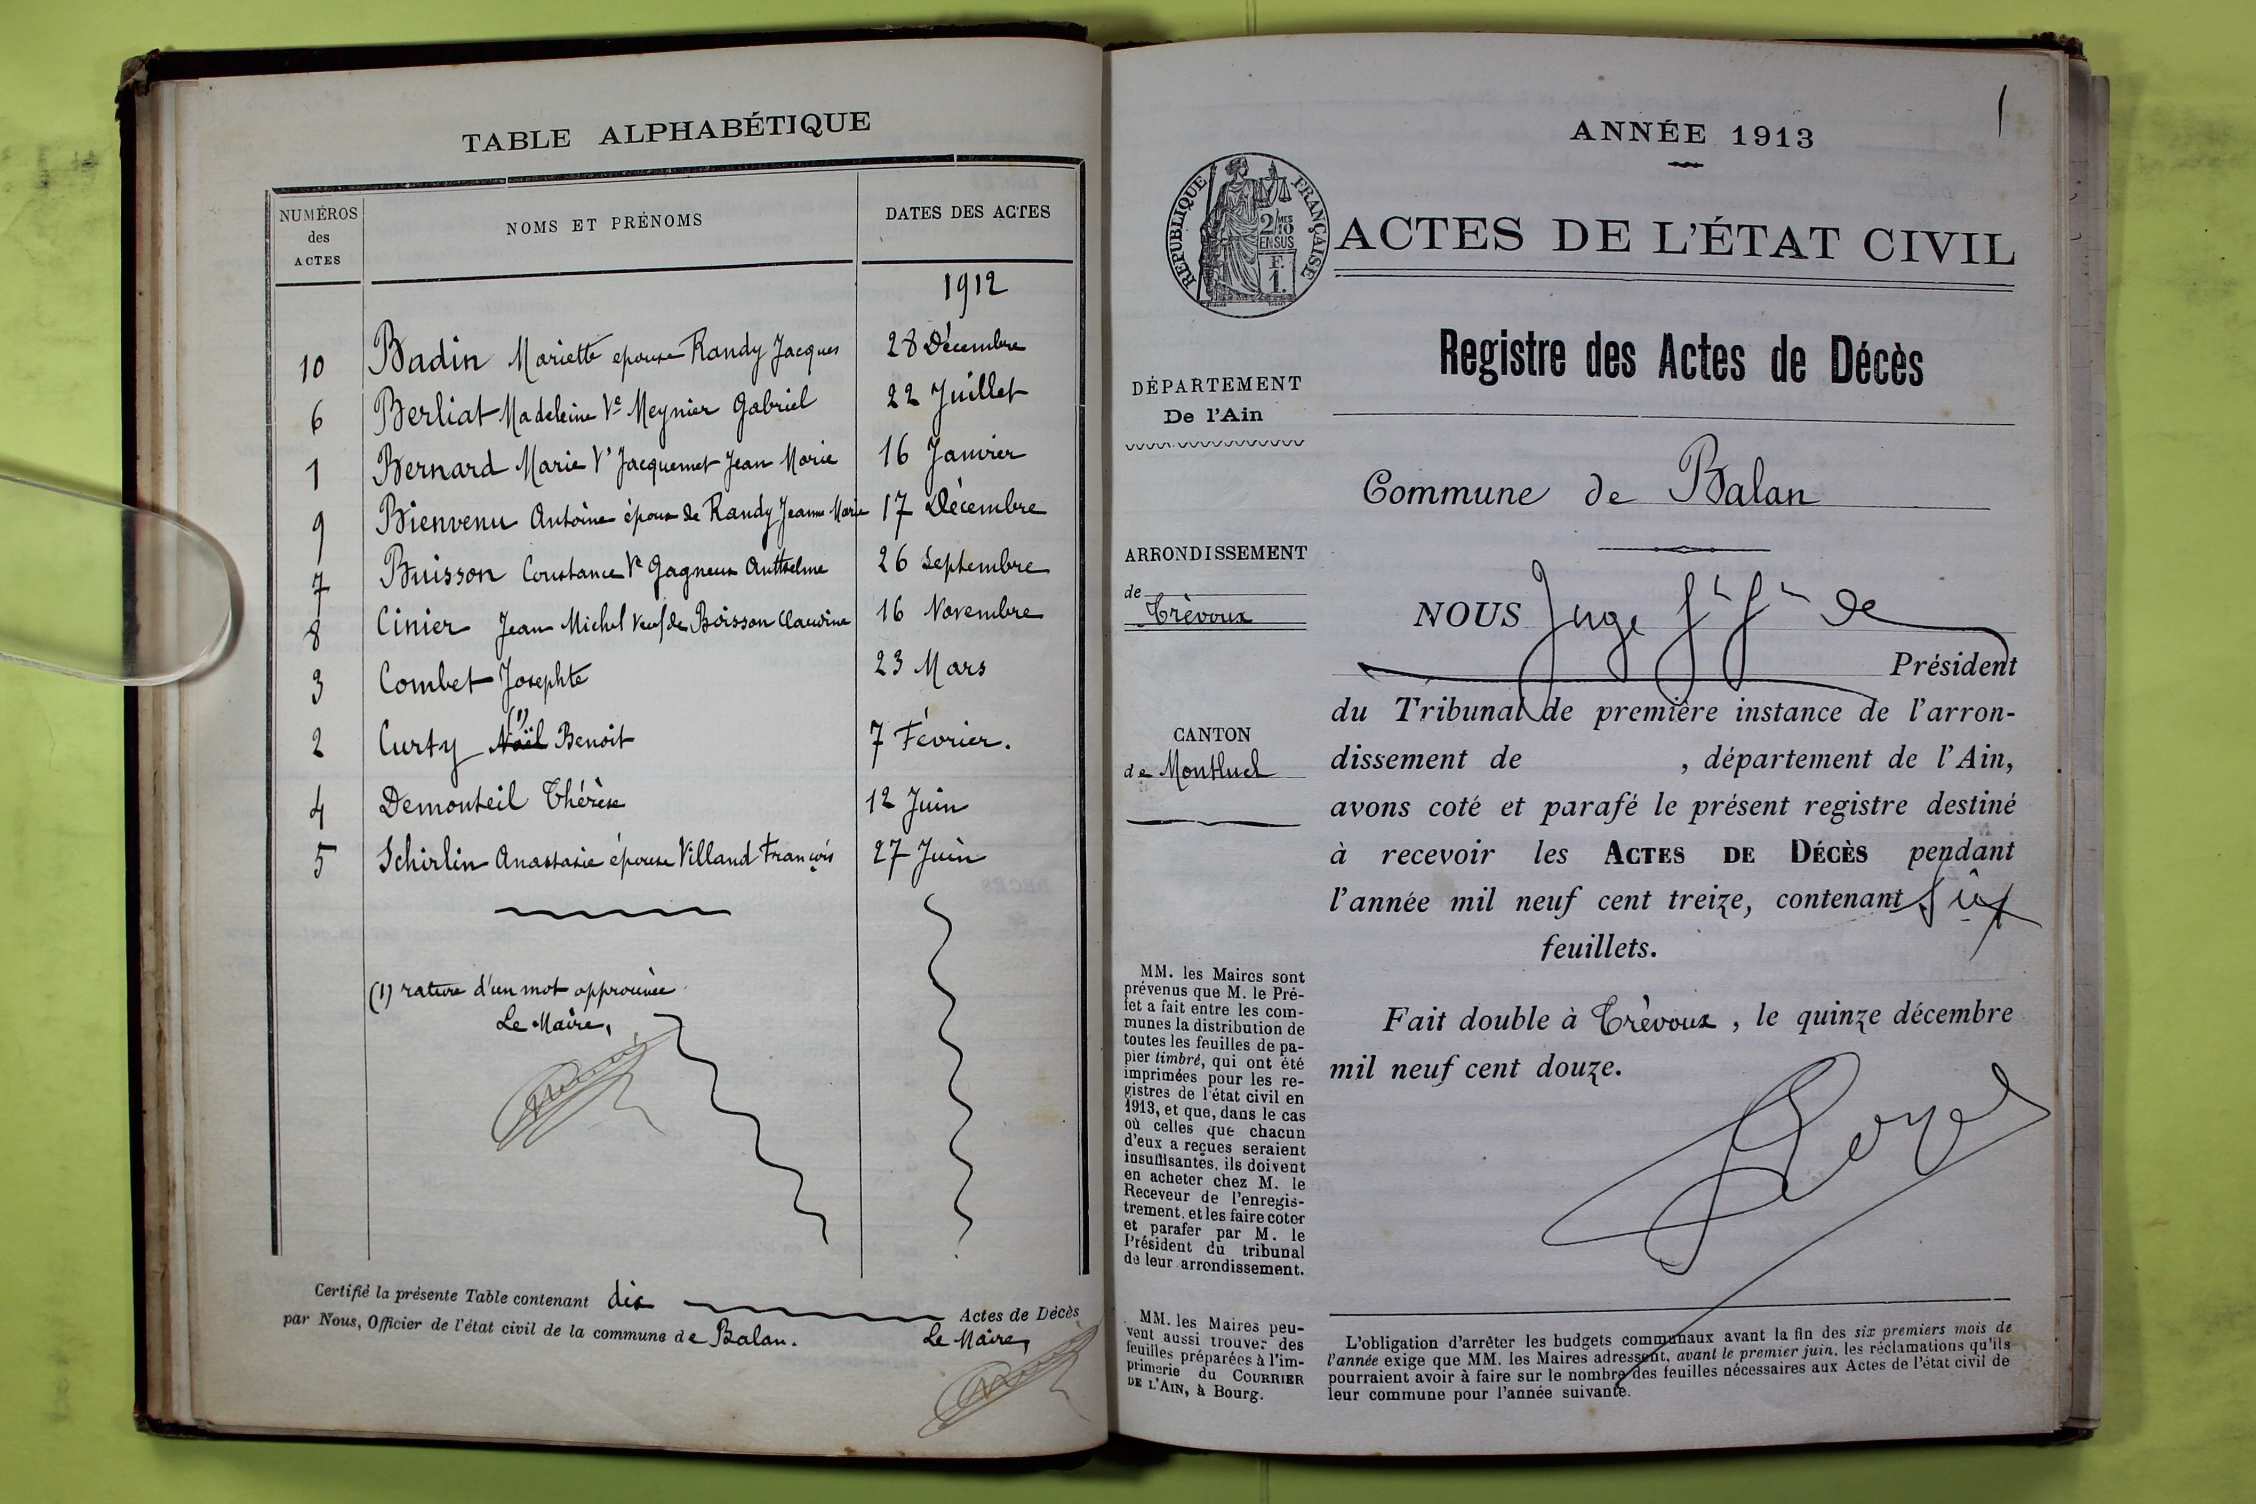 TABLE ALPHABÉTIQUE
NUMÉROS
des
ACTES
NOMS ET PRÉNOMS
DATES DES ACTES
1912
10 Badin Mariette epouse Randy Jacques 28 Décembre
6 Berliat Madeleine Ve Meynier Gabriel 22 Juillet
1 Bernard Marie Ve Jacquemet Jean Marie 16 Janvier
9 Bienvenu Antoine époux de Randy Jeanne Marie 17 Décembre
7 Buisson Constance Ve Gagneux Anthelme 26 Septembre
8 Cinier Jean Michel veuf de Boisson Claudine 16 Novembre
3 Combet Josephte 23 Mars
2 Curty Noël (1) Benoit 7 Février.
4 Demonteil Thérèse 12 Juin
5 Schirlin Anastasie épouse Villand François 27 Juin
(1) rature d'un mot approuvée
Le Maire,
Certifié la présente Table contenant dix Actes de Décès
par Nous, Officier de l'état civil de la commune de Balan.
Le Maire,
1
ANNÉE 1913
RÉPUBLIQUE FRANÇAISE
2/10 MES
EN SUS
F.
1.
ACTES DE L'ÉTAT CIVIL
Registre des Actes de Décès
DÉPARTEMENT
De l'Ain
Commune de Balan
ARRONDISSEMENT
de
Trévoux
CANTON
de Montluel
NOUS Juge de
Président
du Tribunal de première instance de l'arron-
dissement de , département de l'Ain,
avons coté et parafé le présent registre destiné
à recevoir les ACTES DE DÉCÈS pendant
l'année mil neuf cent treize, contenant six
feuillets.
Fait double à Trévoux, le quinze décembre
mil neuf cent douze.
MM. les Maires sont
prévenus que M. le Pré-
fet a fait entre les com-
munes la distribution de
toutes les feuilles de pa-
pier timbré, qui ont été
imprimées pour les re-
gistres de l'état civil en
1913, et que, dans le cas
où celles que chacun
d'eux a reçues seraient
insuffisantes, ils doivent
en acheter chez M. le
Receveur de l'enregis-
trement, et les faire coter
et parafer par M. le
Président du tribunal
de leur arrondissement.
MM. les Maires peu-
vent aussi trouver des
feuilles préparées à l'im-
primerie du COURRIER
DE L'AIN, à Bourg.
L'obligation d'arrêter les budgets communaux avant la fin des six premiers mois de
l'année exige que MM. les Maires adressent, avant le premier juin, les réclamations qu'ils
pourraient avoir à faire sur le nombre des feuilles nécessaires aux Actes de l'état civil de
leur commune pour l'année suivante.